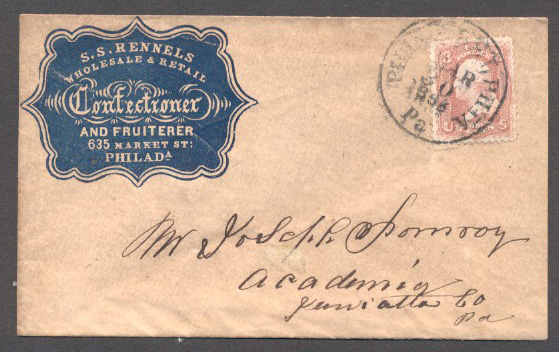 S.S. RENNELS
WHOLESALE & RETAIL
Confectioner
AND FRUITERER
635 MARKET ST:
PHILADA
Pa
Mr Joseph Pomroy
Academia
Juniatta Co
Pa